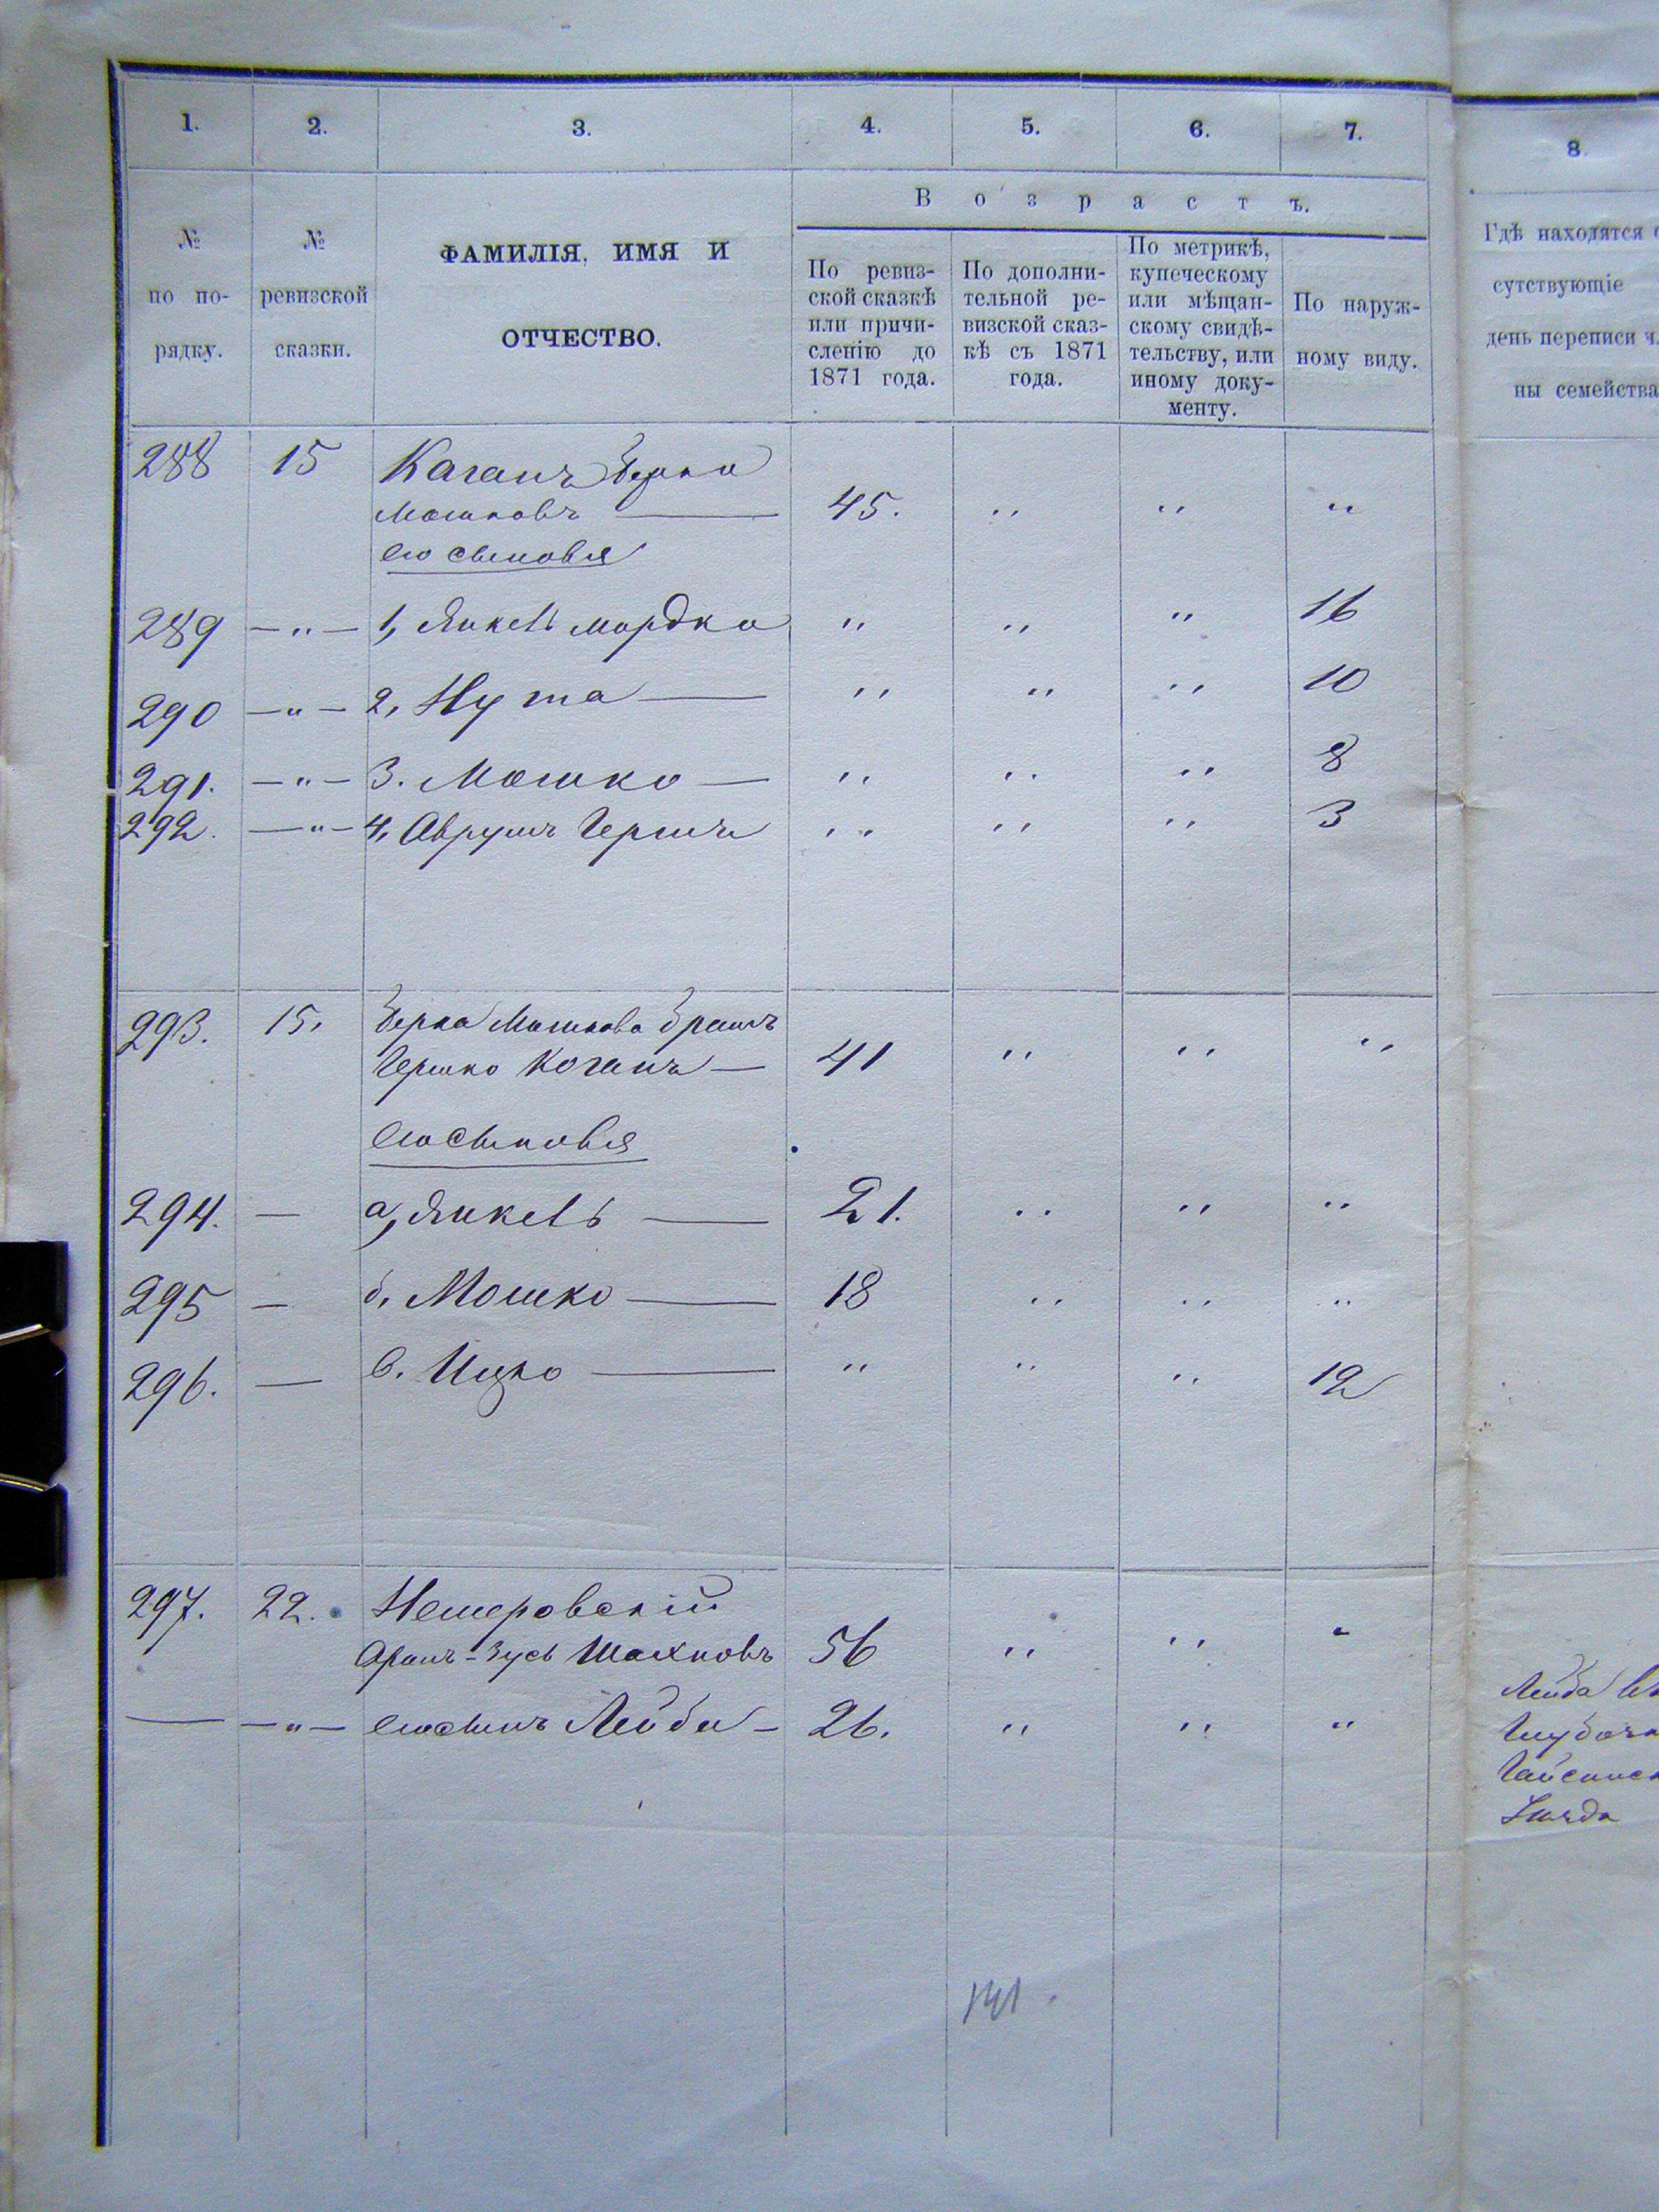 1. 2. 3. 4. 5. 6. 7. 8.
В о з р а с т ъ.
№ по по-рядку.
№ ревизской сказки.
ФАМИЛІЯ, ИМЯ И
ОТЧЕСТВО.
По ревиз-
ской сказкѣ
или причи-
сленію до
1871 года.
По дополни-
тельной ре-
визской сказ-
кѣ съ 1871
года.
По метрикѣ,
купеческому
или мѣщан-
скому свидѣ-
тельству, или
иному доку-
менту.
По наруж-
ному виду.
Гдѣ находятся
сутствующіе
день переписи
ны семейства
288 15 Каганъ Берко
Мошковъ — 45. " " "
его сыновья
289 —"— 1, Янкель Мордко " " " 16
290 —"— 2, Нута — " " " 10
291. —"— 3. Мошко — " " " 8
292. —"— 4, Аврумъ Гершъ " " " 3
293. 15. Берка Мошкова братъ
Гершко Коганъ — 41 " " "
его сыновья
294. — а, Янкель — 21. " " "
295 — б. Мошко — 18 " " "
296. — в. Ицко — " " " 12
297. 22. Немеровскій
Аронъ-Зусь Шахновъ 56 " " "
— —"— его сынъ Лейба — 26. " " "
Лейба
Гайсинск
141